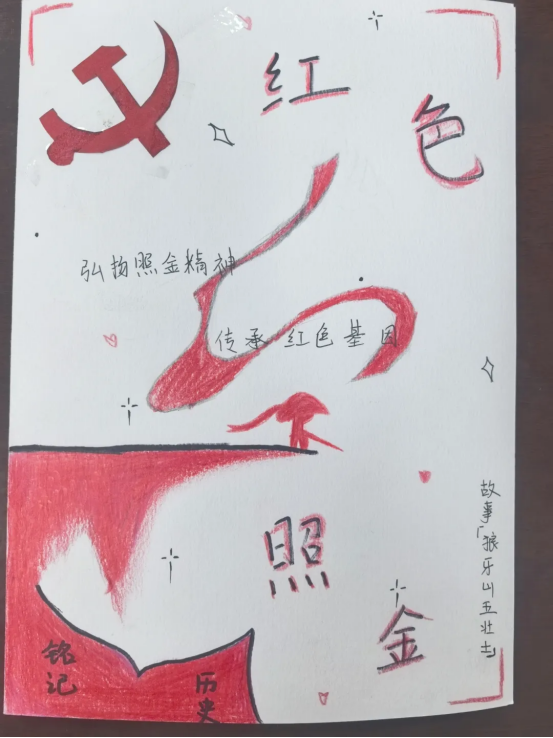 红色
弘扬照金精神
传承 红色基因
照金
故事「狼牙山五壮士」
铭记
历史